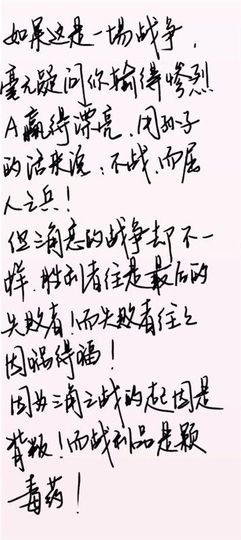 如果这是一场战争，
毫无疑问你输得惨烈
A赢得漂亮，用孙子
的话来说：不战而屈
人之兵！
但三角恋的战争却不一
样，胜利者往往是最后的
失败者！而失败者往往
因祸得福！
因为三角之战的起因是
背叛！而战利品是颗
毒药！